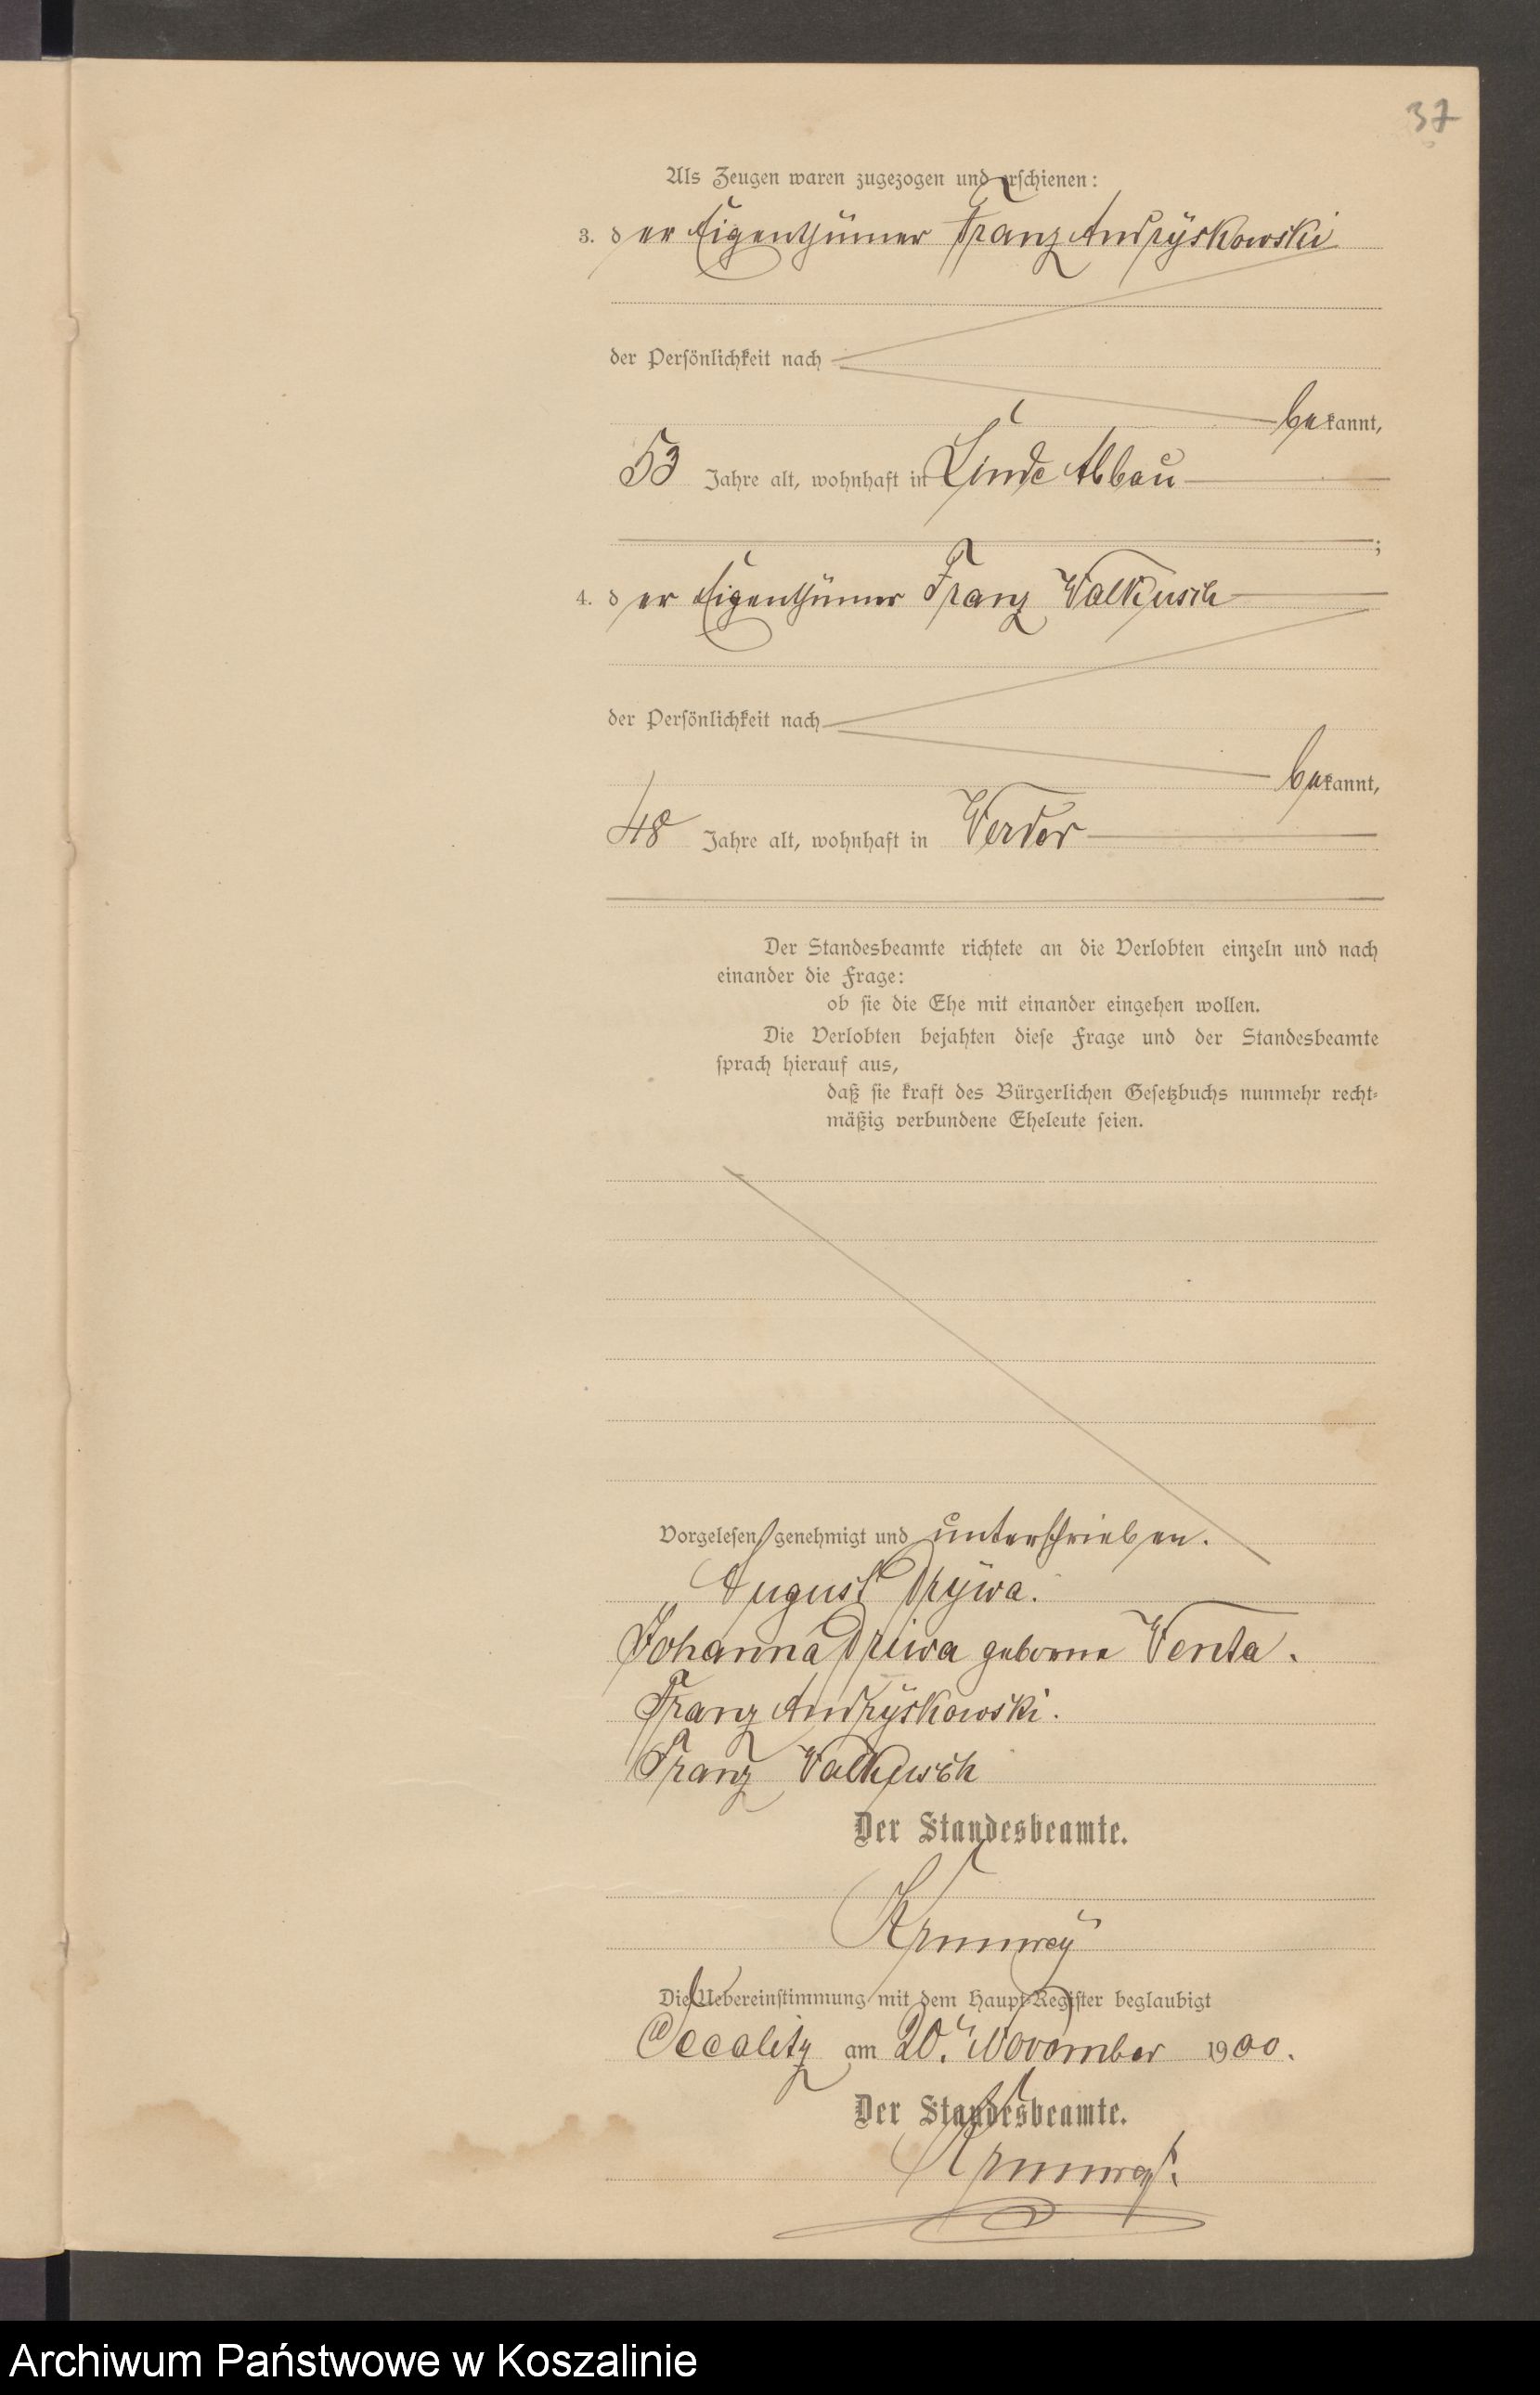 37
Als Zeugen waren zugezogen und erschienen:
3. der Eigenthümer Franz Andryskowski
der Persönlichkeit nach
bekannt,
53 Jahre alt, wohnhaft in Linde Abbau
;
4. der Eigenthümer Franz Walkusch
der Persönlichkeit nach
bekannt,
48 Jahre alt, wohnhaft in Werder
Der Standesbeamte richtete an die Verlobten einzeln und nach
einander die Frage:
ob sie die Ehe mit einander eingehen wollen.
Die Verlobten bejahten diese Frage und der Standesbeamte
sprach hierauf aus,
daß sie kraft des Bürgerlichen Gesetzbuchs nunmehr recht-
mäßig verbundene Eheleute seien.
Vorgelesen, genehmigt und unterschrieben.
August Drÿwa.
Johanna Driwa geborne Wenta.
Franz Andrÿskowski.
Franz Walkusch
Der Standesbeamte.
Die Uebereinstimmung mit dem Haupt-Register beglaubigt
am 20. November 1900.
Der Standesbeamte.
Archiwum Państwowe w Koszalinie